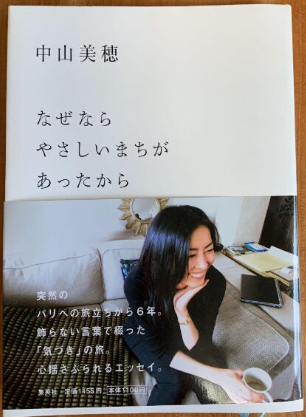 中山美穂
なぜなら
やさしいまちが
あったから
突然の
パリへの旅立ちから6年。
飾らない言葉で綴った
「気づき」の旅。
心揺さぶられるエッセイ。
集英社 定価1455円 本体1100円